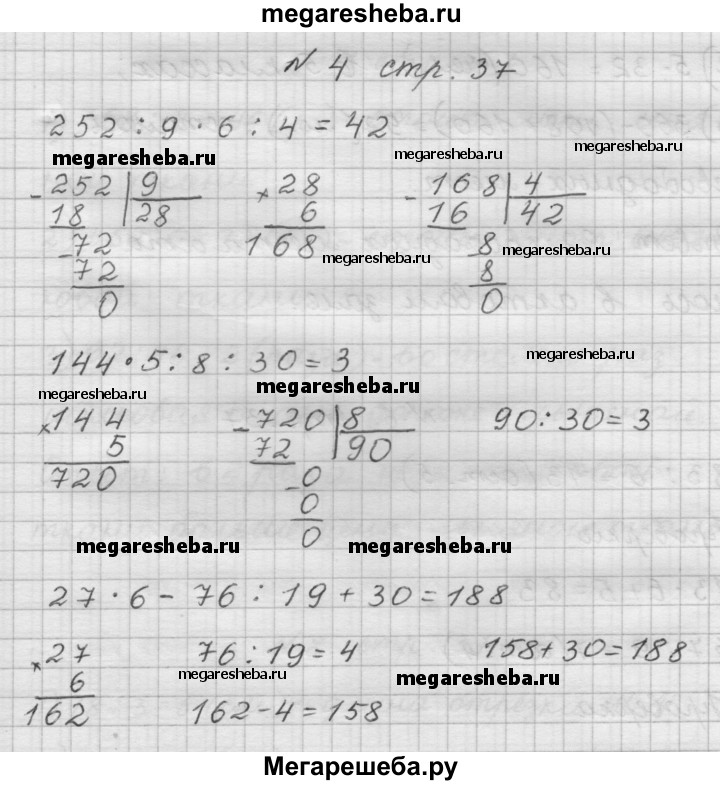 megaresheba.ru
№ 4 стр. 37
252 : 9 · 6 : 4 = 42
megaresheba.ru megaresheba.ru megaresheba.ru
- 252 | 9 × 28 - 168 | 4
18 | 28 6 16 | 42
- 72 168 - 8
megaresheba.ru megaresheba.ru
72 8
0 0
144 · 5 : 8 : 30 = 3
megaresheba.ru
megaresheba.ru
megaresheba.ru
× 144 - 720 | 8 90 : 30 = 3
5 72 | 90
720 - 0
0
0
megaresheba.ru megaresheba.ru
27 · 6 - 76 : 19 + 30 = 188
× 27 76 : 19 = 4 158 + 30 = 188
megaresheba.ru megaresheba.ru
6
162 162 - 4 = 158
Мегарешеба.ру